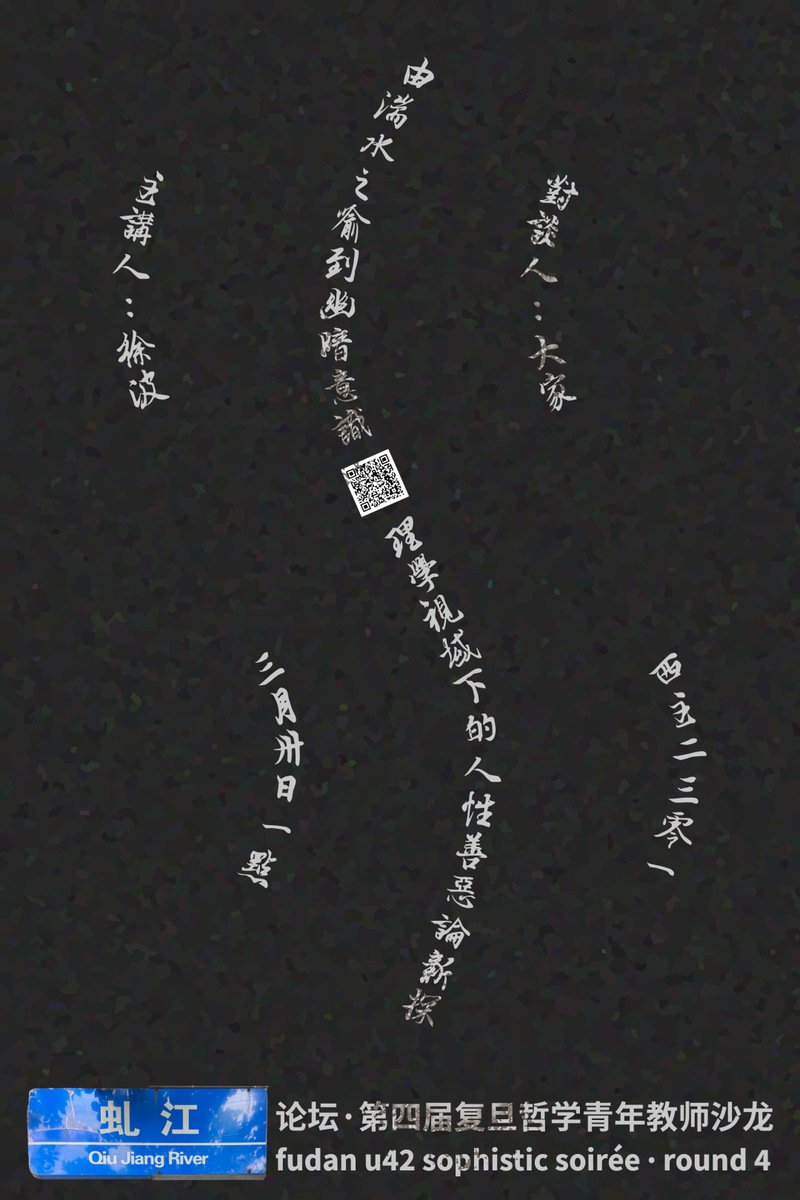 由湍水之喻到幽暗意識
理學視域下的人性善惡論新探
主講人：徐波
對談人：大家
三月卅日一點
西主二三零一
虬江
Qiu Jiang River
论坛·第四届复旦哲学青年教师沙龙
fudan u42 sophistic soirée · round 4